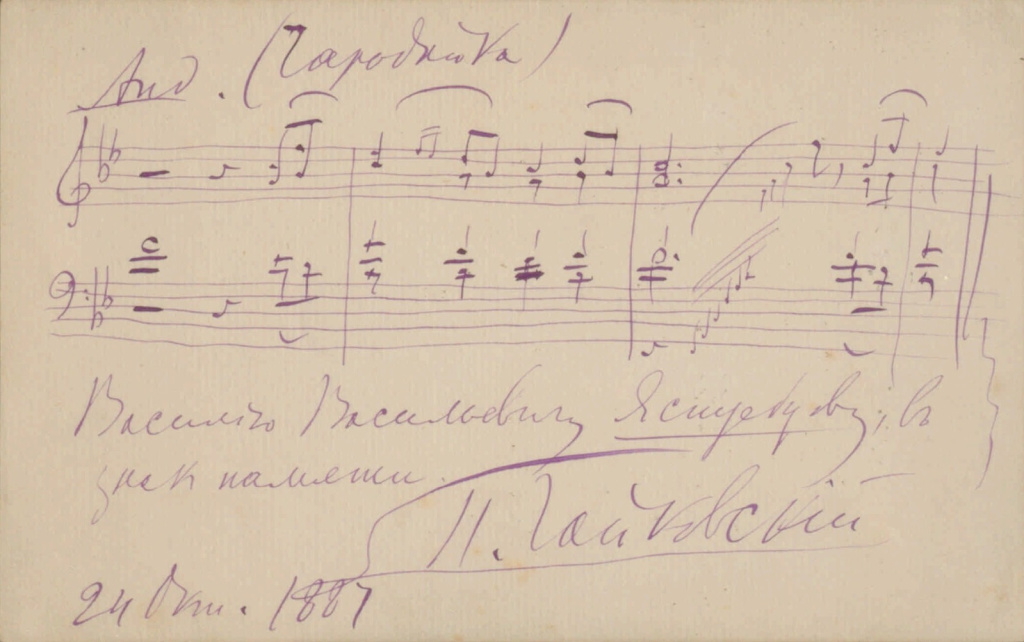 And. (Чародѣйка)
Василію Васильевичу Ястребову, въ
знак памяти.
П. Чайковскій
24 Окт. 1887